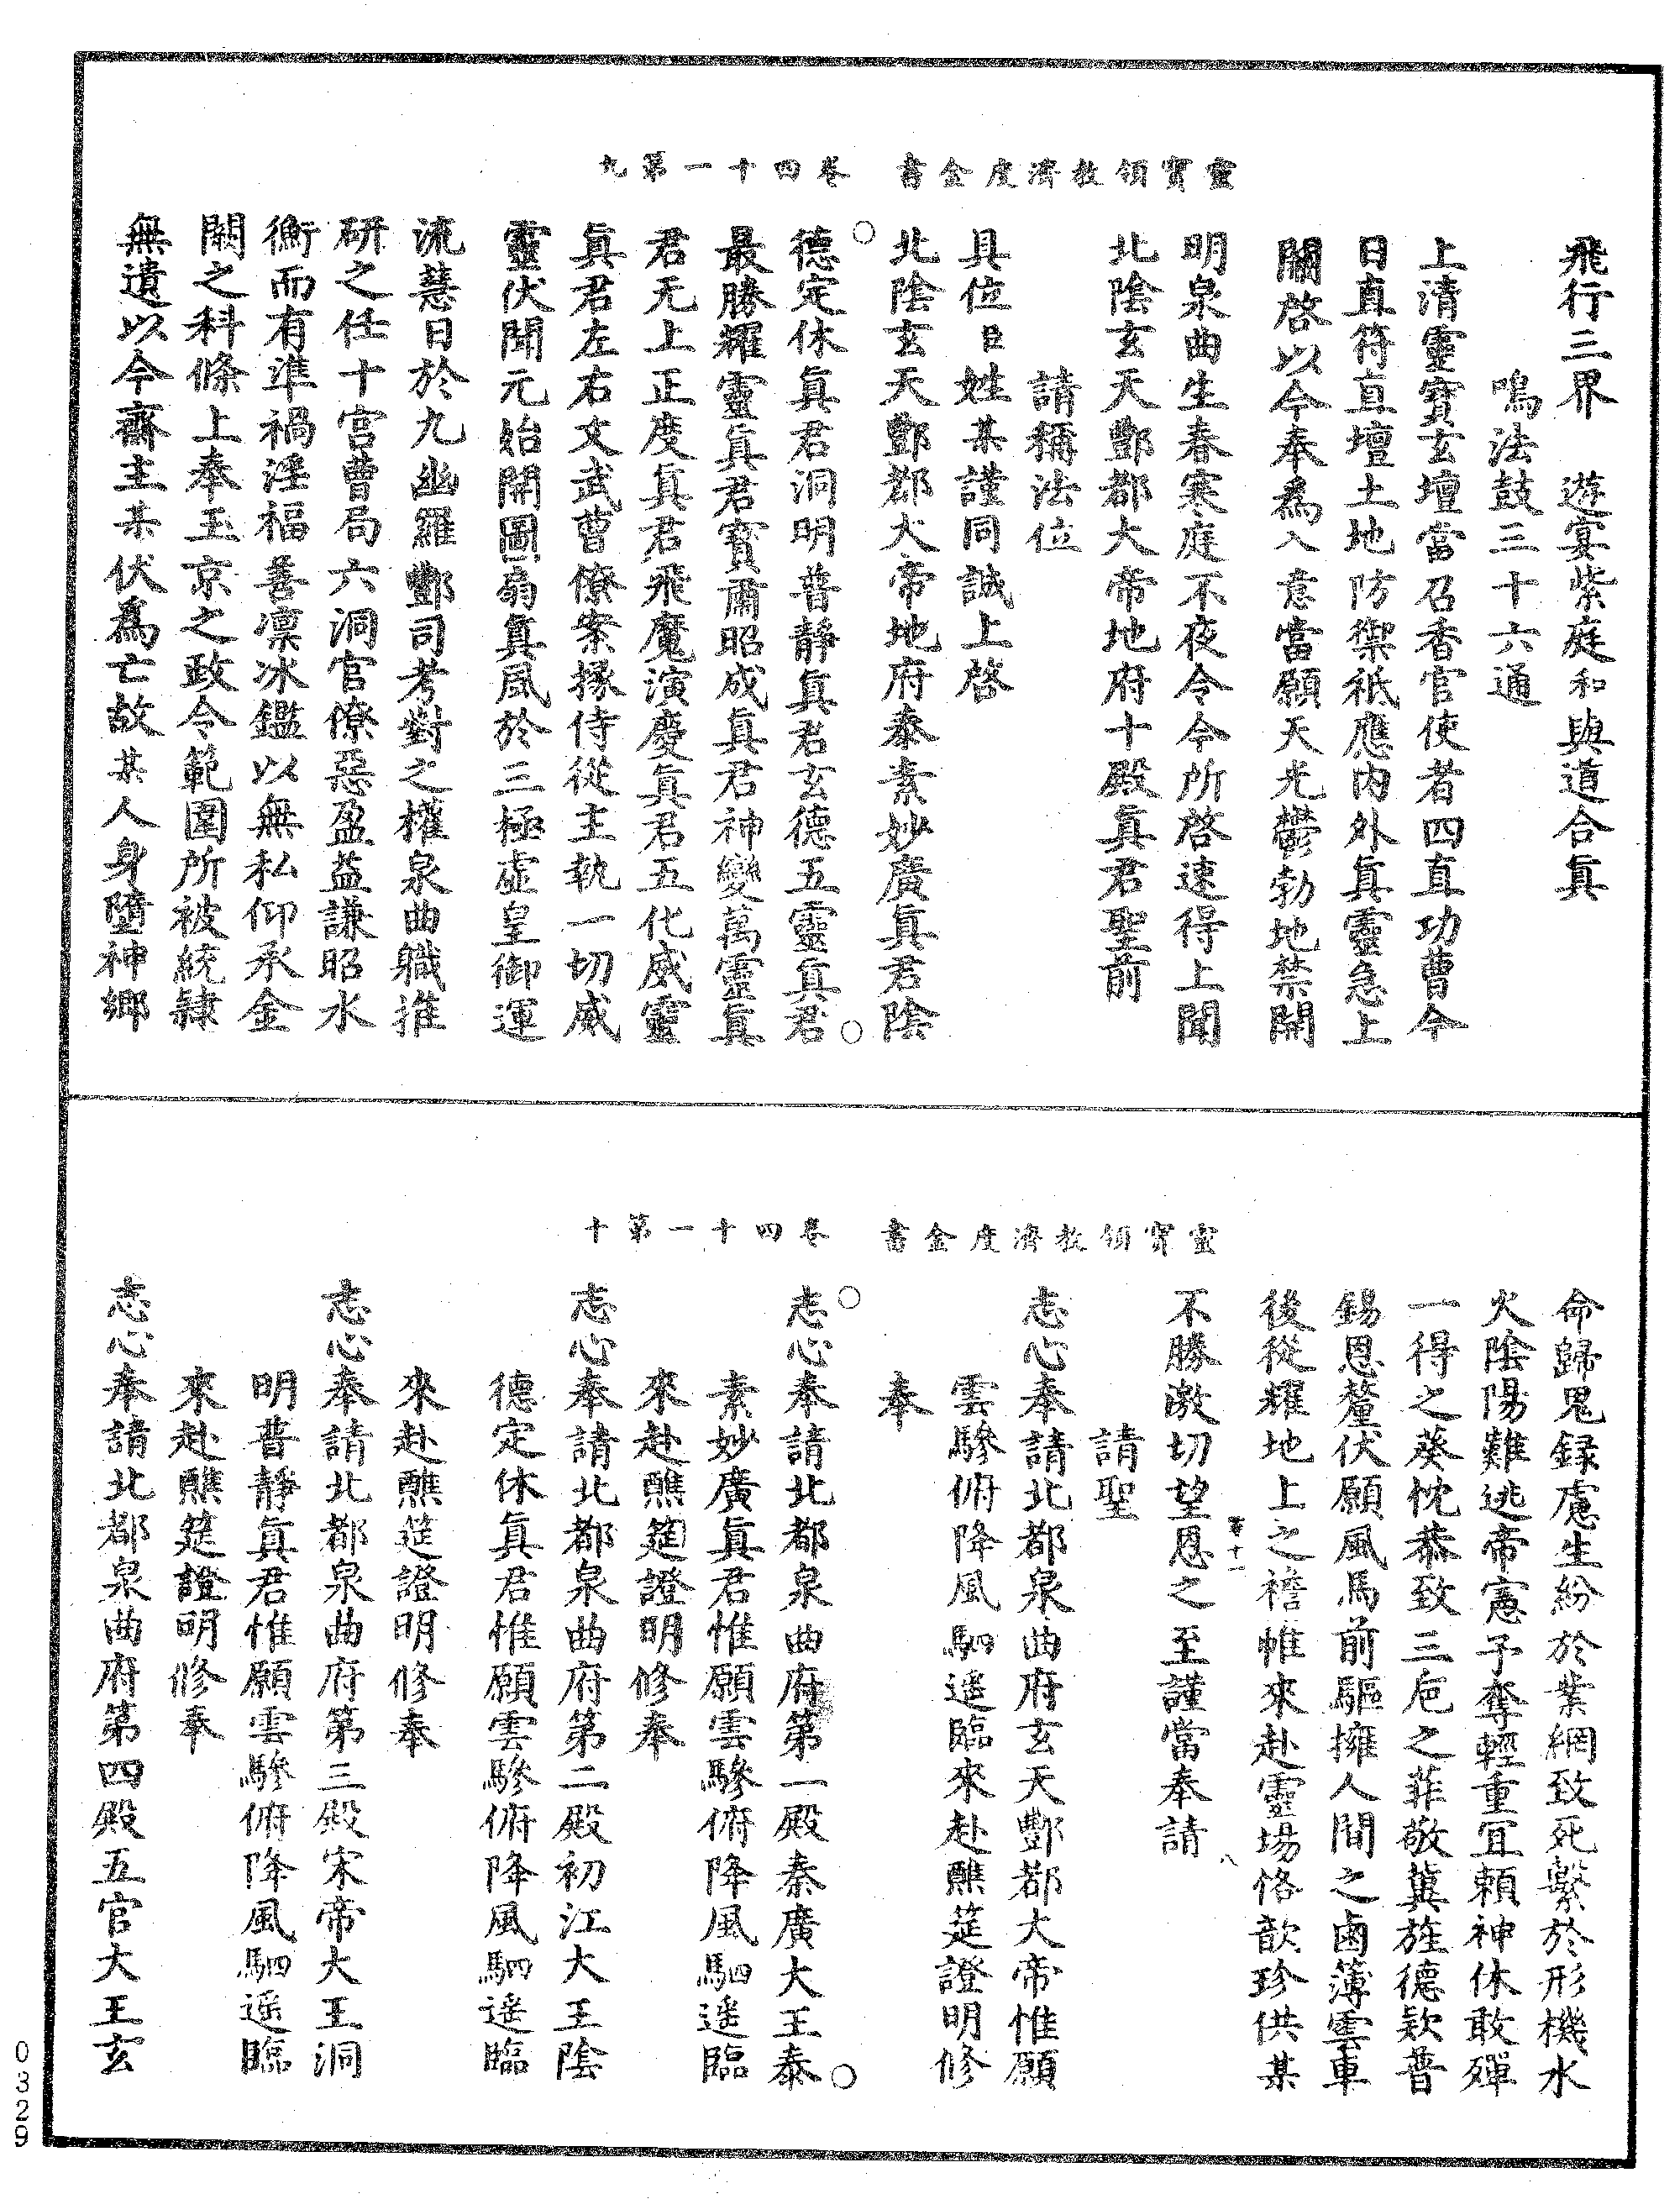 靈寶領教濟度金書　卷四十一第九
飛行三界　遊宴紫庭和與道合眞
鳴法鼓三十六通
上清靈寶玄壇當召香官使者四直功曹今
日直符直壇土地防禦祗應内外眞靈急上
關啓以今奉爲入意當願天光鬱勃地禁開
明泉曲生春寒庭不夜令今所啓速得上聞
北陰玄天酆都大帝地府十殿眞君聖前
請稱法位
具位臣姓某謹同誠上啓
北陰玄天酆都大帝地府泰素妙廣眞君陰
德定休眞君洞明普靜眞君玄德五靈眞君
最勝耀靈眞君寶肅昭成眞君神變萬靈眞
君无上正度眞君飛魔演慶眞君五化威靈
眞君左右文武曹僚案掾侍從主執一切威
靈伏聞元始開圖扇眞風於三極虛皇御運
流慧日於九幽羅酆司考對之權泉曲職推
研之任十宮曹局六洞官僚惡盈益謙昭水
衡而有準禍淫福善凛冰鑑以無私仰承金
闕之科條上奉玉京之政令範圍所被統隸
無遺以今齋主某伏爲亡故某人身墮神鄉
靈寶領教濟度金書　卷四十一第十
命歸鬼録慮生紛於業網致死繫於形機水
火陰陽難逃帝憲予奪輕重冝頼神休敢殫
一得之葵忱恭致三巵之菲敬冀旌德欵普
錫恩釐伏願風馬前驅擁人間之鹵簿雲車
後從耀地上之襜帷來赴靈場恪歆珍供某
不勝激切望恩之至謹當奉請
請聖
志心奉請北都泉曲府玄天酆都大帝惟願
雲驂俯降風駟遥臨來赴醮筵證明修
奉
志心奉請北都泉曲府第一殿秦廣大王泰
素妙廣眞君惟願雲驂俯降風駟遥臨
來赴醮筵證明修奉
志心奉請北都泉曲府第二殿初江大王陰
德定休眞君惟願雲驂俯降風駟遥臨
來赴醮筵證明修奉
志心奉請北都泉曲府第三殿宋帝大王洞
明普靜眞君惟願雲驂俯降風駟遥臨
來赴醮筵證明修奉
志心奉請北都泉曲府第四殿五官大王玄
0329